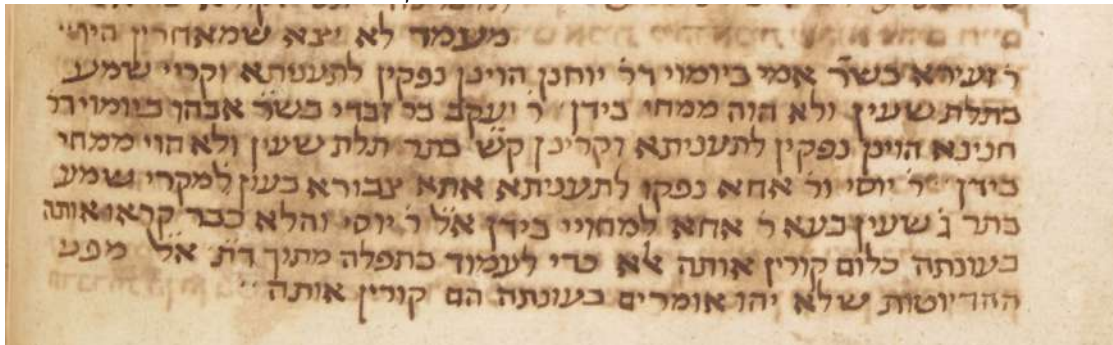 מעמד לא יצא שמאחרין היו
ר זעירא בשר אמי ביומוי דר יוחנן הוינן נפקין לתעניתא וקרוי שמע
בתלת שעין ולא הוה ממחי בידן ר יעקב בר זבדי בשר אבהו ביומוי דר
חנינא הוינן נפקין לתעניתא וקרינן קש בתר תלת שעין ולא הוי ממחי
בידן ר יוסי ור אחא נפקו לתעניתא אתא צבורא בעון למקרי שמע
בתר ג שעין בעא ר אחא למחויי בידן אל ר יוסי והלא כבר קראו אותה
בעונתה כלום קורין אותה אלא כדי לעמוד בתפלה מתוך דת אל מפני
ההדיוטות שלא יהו אומרים בעונתה הם קורין אותה